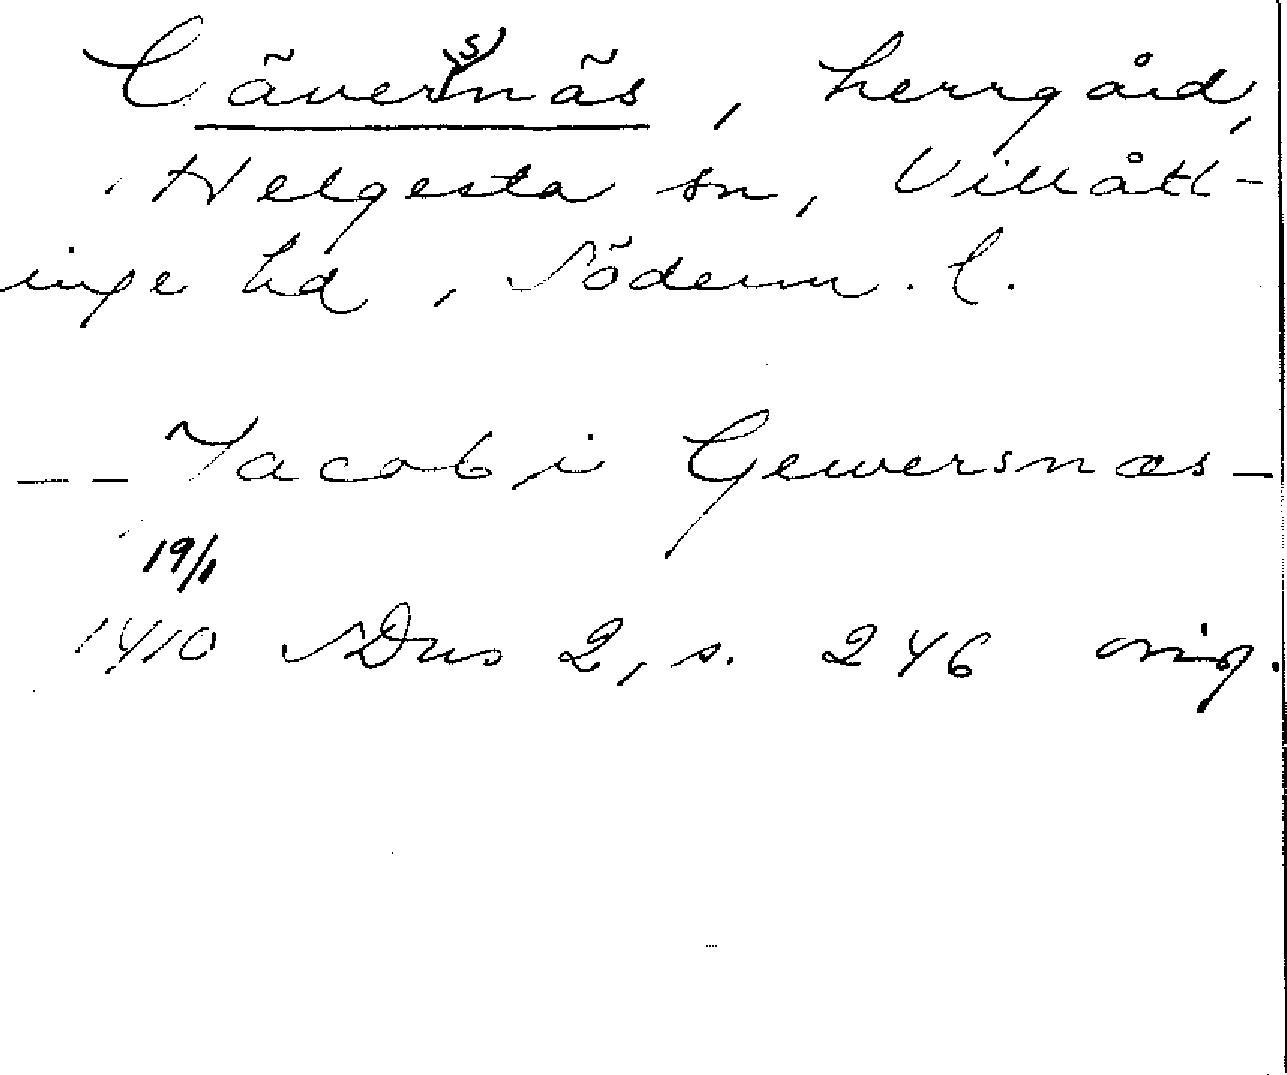 Gäver(s)näs, herrgård,
Helgesta sn, Villått-
inge hd, Söderm. l.
-- Jacob, i Gewersnæs -
19/1
1410 SDns 2, s. 246 orig.